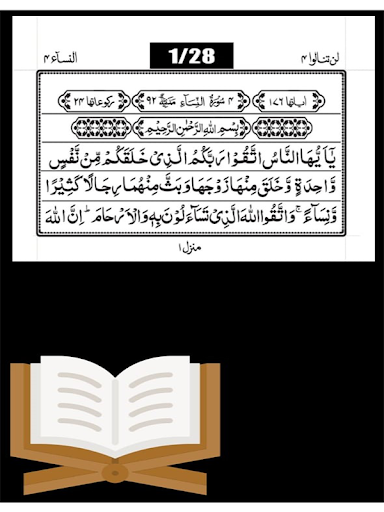 لن تنالوا ۴ 1/28 النسآء ۴
اٰیاتھا ۱۷۶ ۴ سُوْرَةُ النِّسَآءِ مَدَنِيَّةٌ ۹۲ رکوعاتھا ۲۴
بِسْمِ اللّٰهِ الرَّحْمٰنِ الرَّحِيْمِ
يٰۤاَيُّهَا النَّاسُ اتَّقُوْا رَبَّكُمُ الَّذِيْ خَلَقَكُمْ مِّنْ نَّفْسٍ
وَّاحِدَةٍ وَّخَلَقَ مِنْهَا زَوْجَهَا وَبَثَّ مِنْهُمَا رِجَالًا كَثِيْرًا
وَّنِسَآءً ۚ وَاتَّقُوا اللّٰهَ الَّذِيْ تَسَآءَلُوْنَ بِهٖ وَالْاَرْحَامَ ؕ اِنَّ اللّٰهَ
منزل ۱